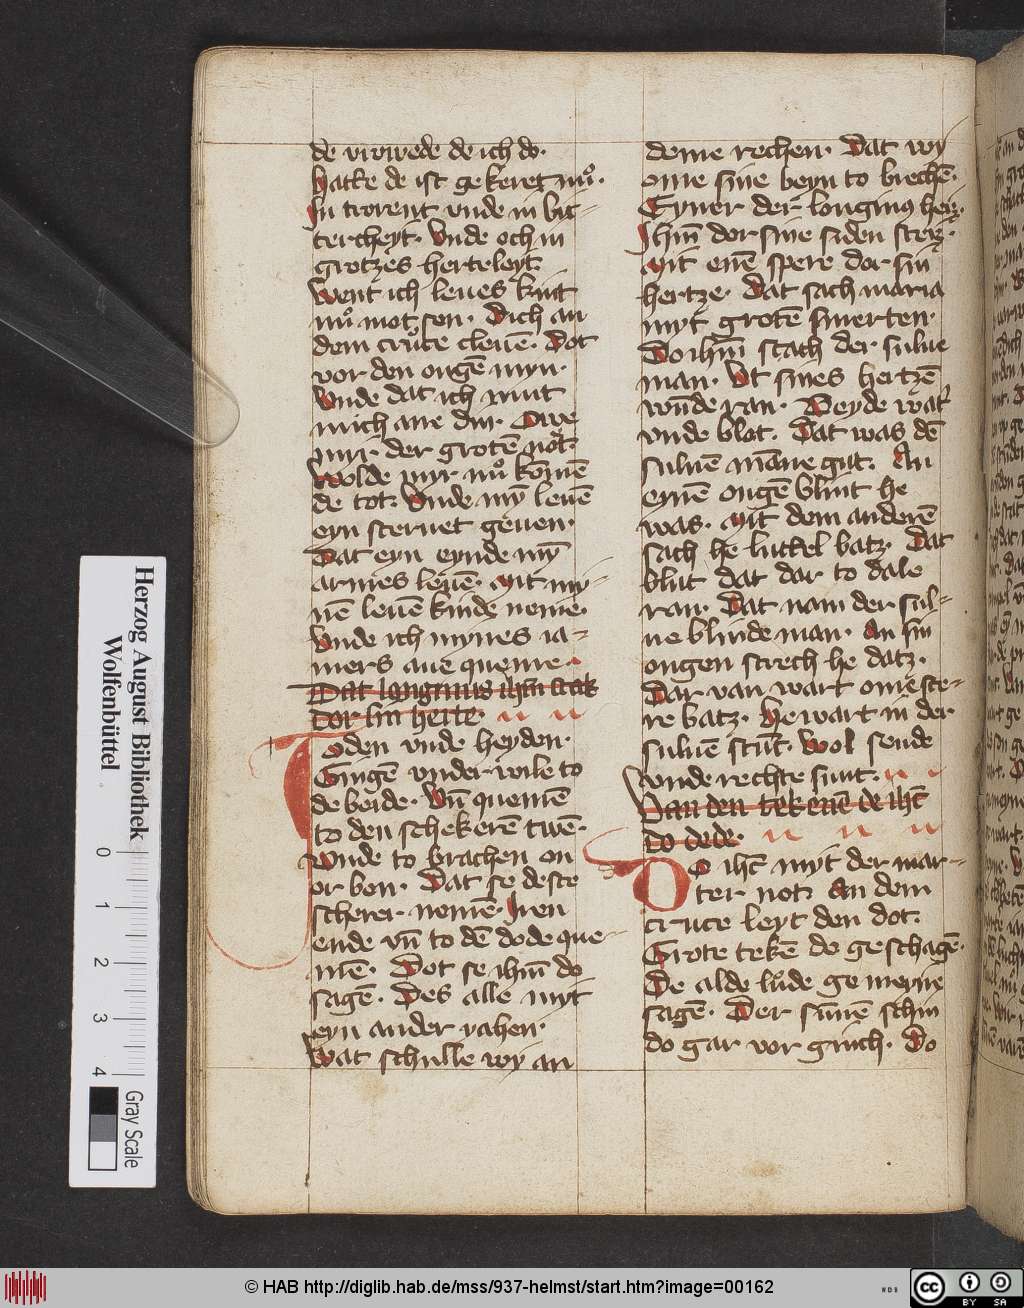 de vrowede de ich do.
hatte de ist gekeret nuͦ.
In trorent vnde in bit-
tercheyt. Vnde och in
grotzes herteleyt.
Went ich leues kint
nuͦ motz sen. Dich an
dem cruce cleuē. Dot
vor den ougē myn.
Vnde dat ich mut
mich ane din. Owe
myr der grotē not.
Wolde myr nuͦ komē
de tot. Vnde mȳ leuē
eyn steruet geuen.
Dat eyn eynde mȳ
armes leuē. Mit mi-
nē leuē kinde neme.
Vnde ich mynes ia-
mers aue queme.
Dat longinus ihm stak
dor sin herte.
Joden vnde heyden.
Gingē vnder wile to
de beide. Vn̄ quemē
to den schekerē twē.
vnde to brachen on
or ben. Dat se deste
scherer nemē. Iren
ende vn̄ to dē dode que-
mē. Dot se ihm̄ do
sagē. Des alle myt
eyn ander iahen.
Wat schulle wy an
deme rechen. Dat wy
ome sine beyn to brechē.
Eyner der longinꝯ heiz.
Ihm̄ dor sine siden steiz.
Mit enē spere dor sin
hertze. Dat sach maria
myt grotē smerten.
Do ihm̄ stach der sulue
man. Vt sines hertzē
wn̄de ran. Beyde watͬ
vnde blot. Dat was dē
suluē māne gut. An
eynē ougē blint he
was. Mit dem anderē
sach he luttel batz. Dat
blut dat dar to dale
ran. Dat nam der sul-
ue blinde man. An sin
ougen strech he datz.
Dar van wart ome ste-
re batz. He wart in der
suluē stūt. Wol sende
vnde rechte sunt.
Van den tekenē de ihc̄
do dede.
Do ihc̄ myt der mar-
ter not. An dem
cruce leyt den dot.
Grote tekē do geschagē.
De alde luͦde gemeyne
sagē. Der sūnē schin
do gar vor ginch. Do
Herzog August Bibliothek
Wolfenbüttel
0 1 2 3 4
Gray Scale
© HAB http://diglib.hab.de/mss/937-helmst/start.htm?image=00162
WDB
cc BY SA